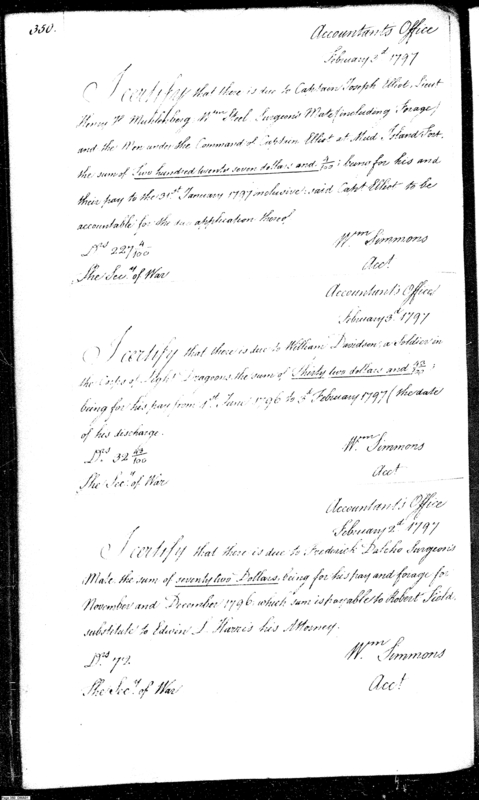 350.
Accountants Office
February 3d 1797
I certify that there is due to Captain Joseph Elliot, Lieut
Henry M Muhlenberg, Wm Steel Surgeon's Mate (including Forage)
and the Men under the Command of Captain Elliot at Mud Island Fort,
the sum of Two hundred twenty seven dollars and 4/100; being for his and
their pay to the 31st January 1797 inclusive: said Capt Elliot to be
accountable for the due application thereof
Drs 227 4/100
Wm Simmons
Acct
The Secy of War
Accountants Office
February 3d 1797
I certify that there is due to William Davidson, a Soldier in
the Corps of Light Dragoons, the sum of Thirty two dollars and 43/100;
being for his pay from 1st June 1796 to 3d February 1797 (the date
of his discharge.
Drs 32 43/100
Wm Simmons
Acct
The Secy of War
Accountants Office
February 2d 1797
I certify that there is due to Frederick Dalcho Surgeon's
Mate, the sum of seventy two Dollars; being for his pay and forage for
November and December 1796, which sum is payable to Robert Field
substitute to Edwin L Harris his Attorney.
Drs 72.
Wm Simmons
Acct
The Secy of War